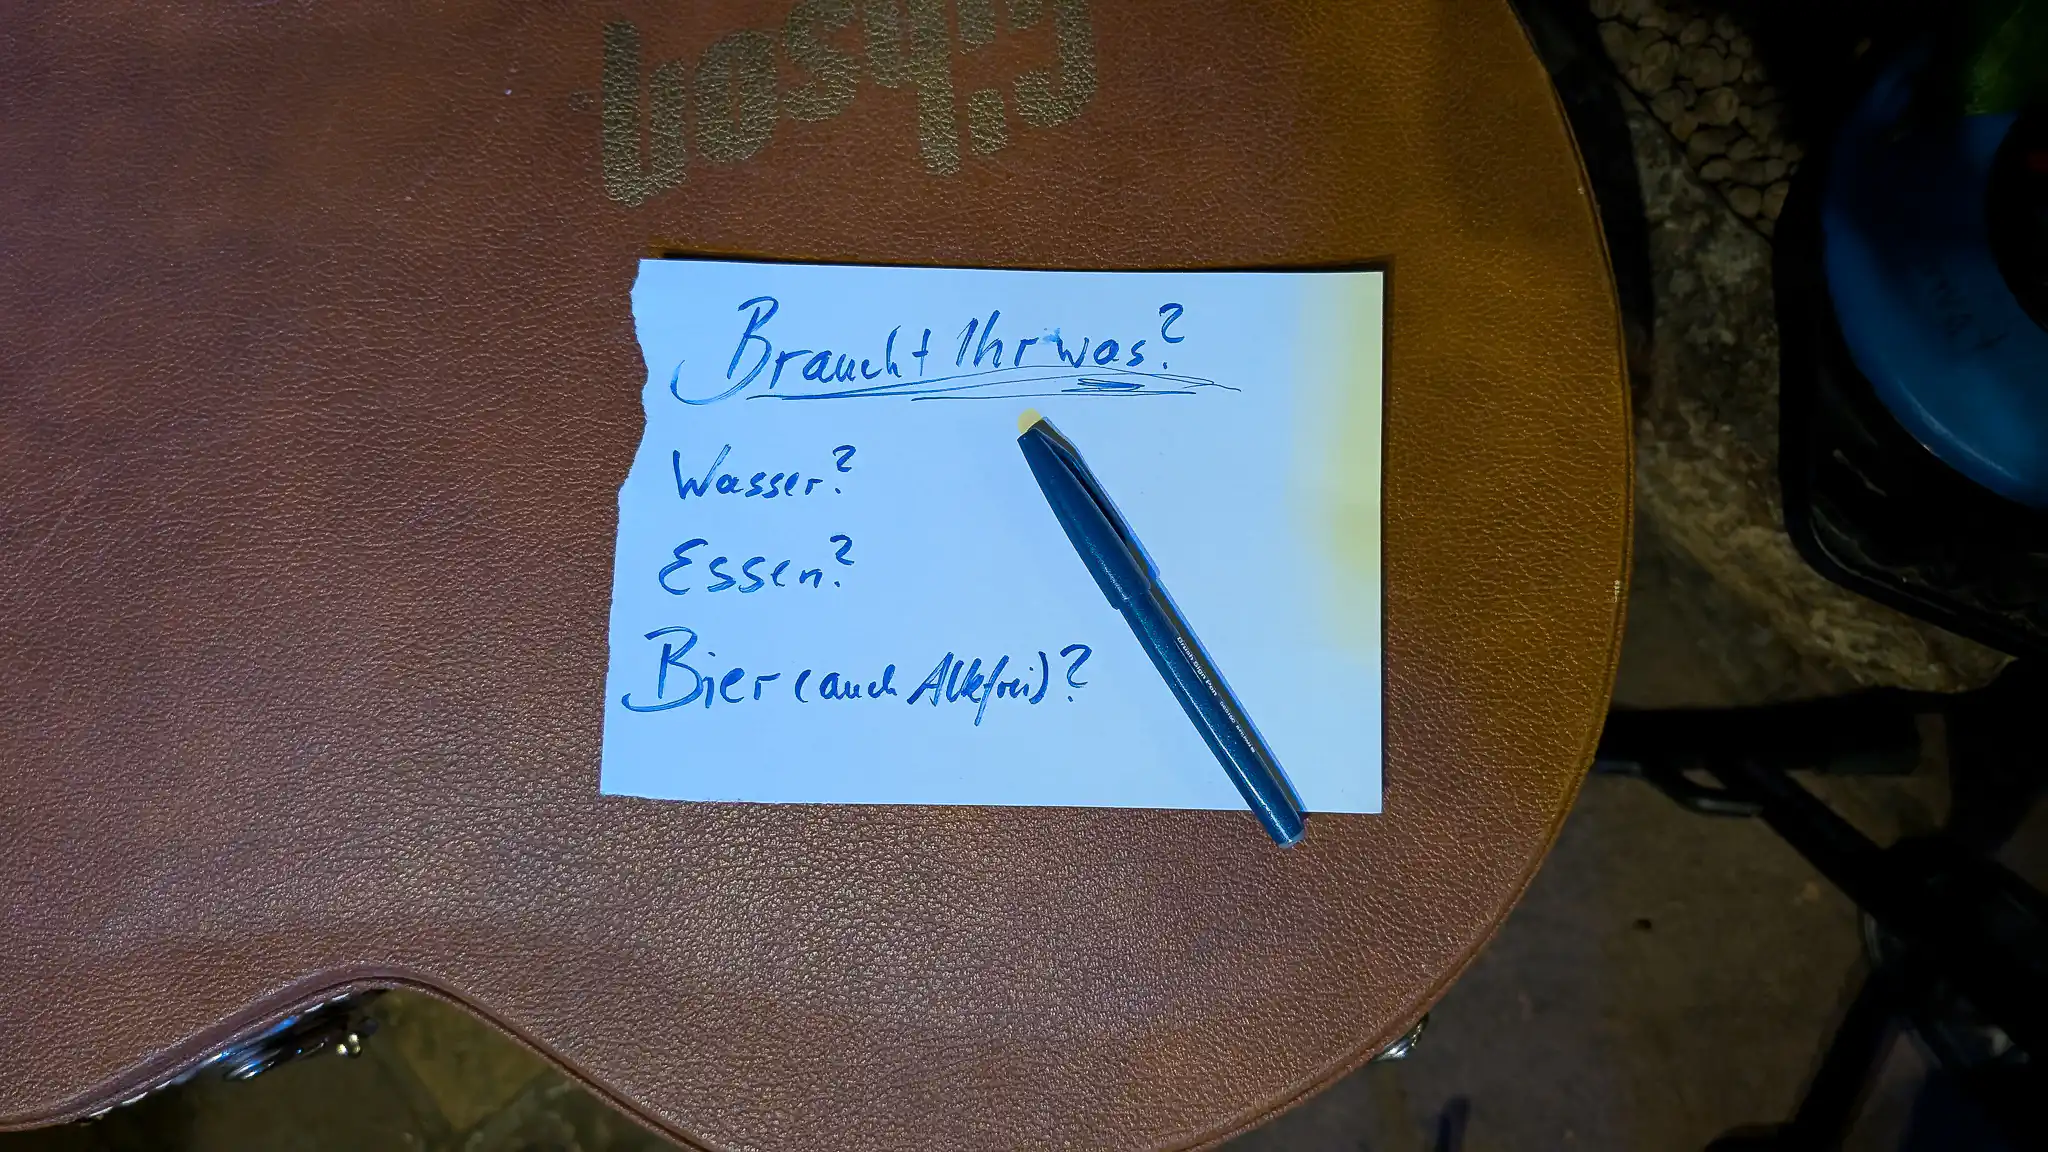 Gibson
Braucht Ihr was?
Wasser?
Essen?
Bier (auch Alkfrei)?
Brush Sign Pen